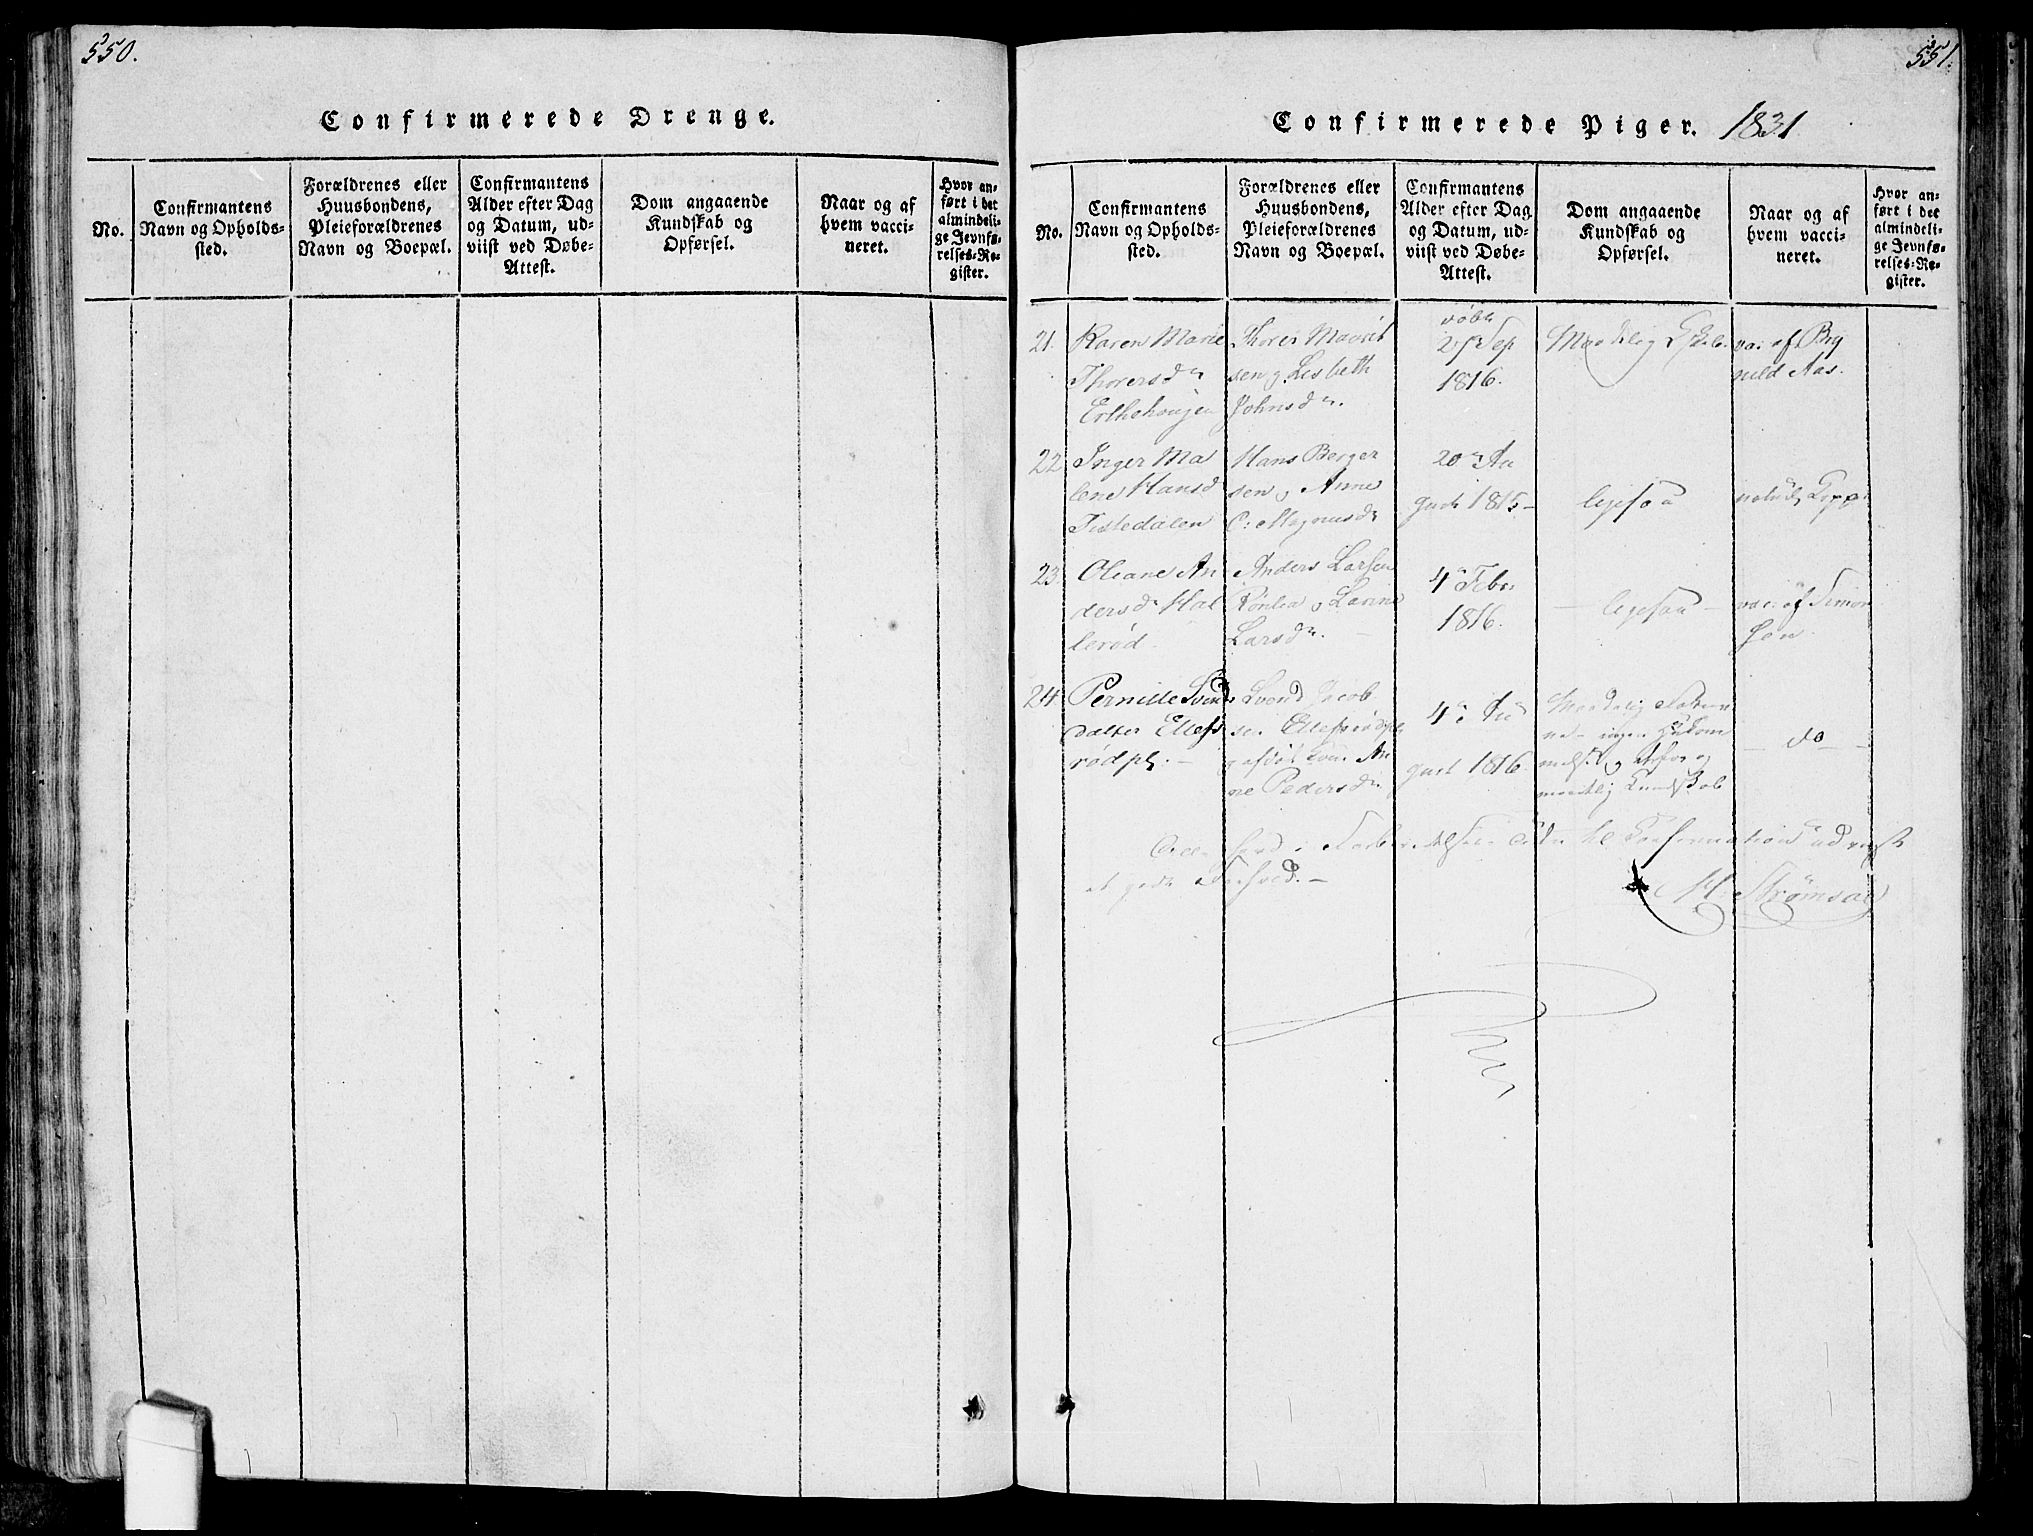 550.
Confirmerede Drenge.
No.
Confirmantens
Navn og Opholds-
sted.
Forældrenes eller
Huusbondens,
Pleieforældrenes
Navn og Boepæl.
Confirmantens
Alder efter Dag
og Datum, ud-
viist ved Døbe-
Attest.
Dom angaaende
Kundskab og
Opførsel.
Naar og af
hvem vacci-
neret.
Hvor an-
ført i det
almindeli-
ge Jevnfø-
relses-Re-
gister.
551.
Confirmerede Piger. 1831
No.
Confirmantens
Navn og Opholds-
sted.
Forældrenes eller
Huusbondens,
Pleieforældrenes
Navn og Boepæl.
Confirmantens
Alder efter Dag
og Datum, ud-
viist ved Døbe-
Attest.
Dom angaaende
Kundskab og
Opførsel.
Naar og af
hvem vacci-
neret.
Hvor an-
ført i det
almindeli-
ge Jevnfø-
relses-Re-
gister.
21.
Karen Marie
Thorersdr
Erthehougen
Thorer Maurit
sen og Lisbeth
Johnsdr.
døbt
Sep
1816.
Maadelig
va: af
Aas.
22
Inger Ma
lene Hansd
Tistedalen
Hans Berger
sen og Anne
C: Magnusdr
20de Au
gust 1815
ligesaa
23
Oleane An
dersdr Hal
lerød
Anders Larsen
Larsdr.
4de Febr
1816.
ligesaa
vac: af Simon
sen.
24.
Pernille Svends
datter Ellefs
rødpl.
Svend Jacob
sen Ellefsrødpl
og An
ne Pedersdr
4de Au
gust 1816.
Maadelig
ingen Hukom
melse og
maadelig Kundskab
do
til Confirmation udviist
et godt Forhold.
H. Strømsøe